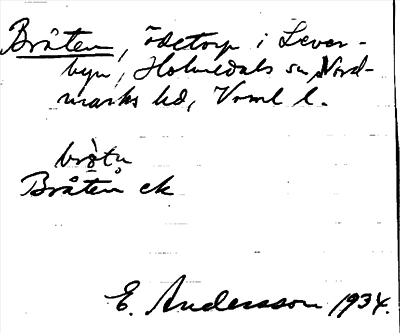 Bråten, ödetorp i Lever-
byn, Holmedals sn, Nord-
marks hd, Vrml l.
bròtn
Bråten ek
E. Andersson 1934.